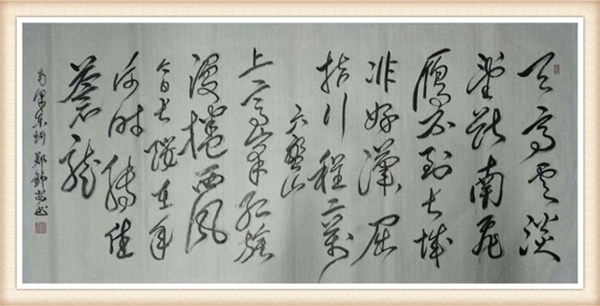 天高云淡
望断南飞
雁不到长城
非好汉屈
指行程二万
六盘山
上高峰红旗
漫捲西风
今日长缨在手
何时缚住
苍龙
毛泽东词 郑 书